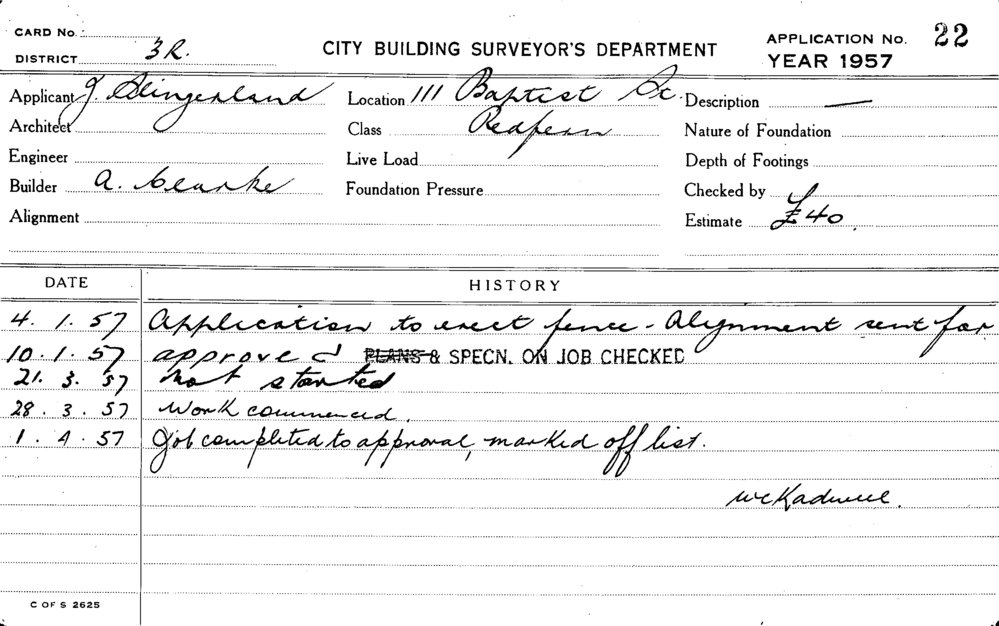 CARD No.
CITY BUILDING SURVEYOR'S DEPARTMENT
APPLICATION No. 22
DISTRICT 3R.
YEAR 1957
Applicant J Slingerland
Location 111 Baptist St.
Description —
Architect
Class Redfern
Nature of Foundation
Engineer
Live Load
Depth of Footings
Builder A. Clarke
Foundation Pressure
Checked by
Alignment
Estimate £40
DATE HISTORY
4. 1. 57 Application to erect fence - Alignment sent for
10. 1. 57 approved PLANS & SPECN. ON JOB CHECKED
21. 3. 57 Not started
28. 3. 57 Work commenced.
1. 4. 57 Job completed to approval, marked off list.
C OF S 2625